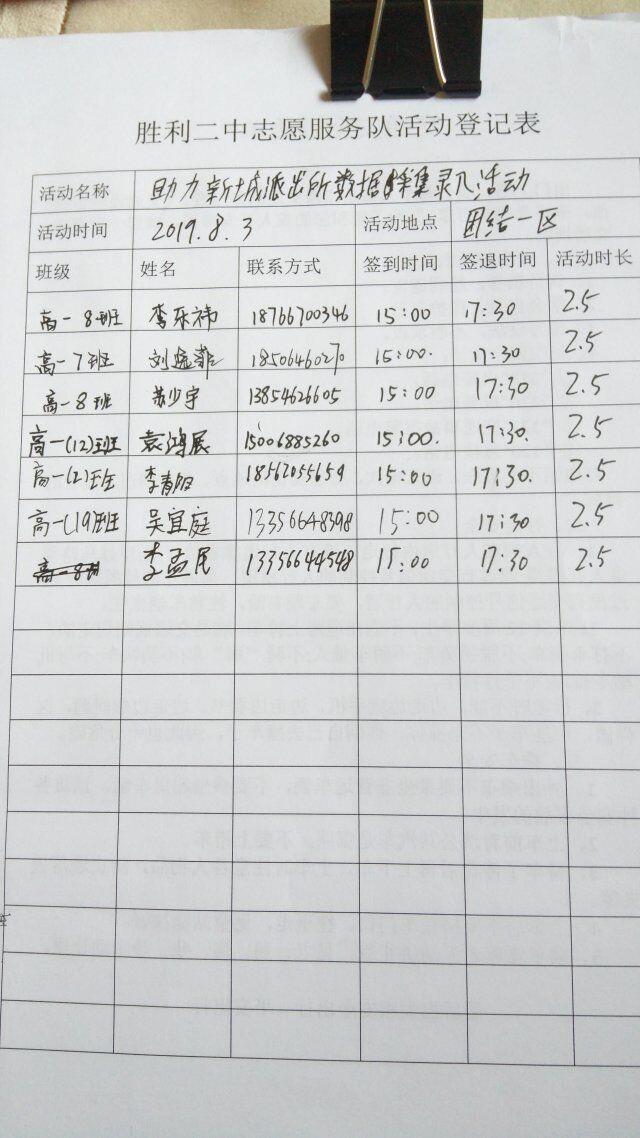 胜利二中志愿服务队活动登记表
活动名称 助力新城派出所数据采集录入活动
活动时间 2019.8.3 活动地点 团结一区
班级 姓名 联系方式 签到时间 签退时间 活动时长
高一8班 李乐祎 18766700346 15:00 17:30 2.5
高一7班 刘 菲 18506460270 15:00. 17:30 2.5
高一8班 苏少宇 13854626605 15:00 17:30 2.5
高一(12)班 袁鸿展 15006885260 15:00. 17:30. 2.5
高一(2)班 李青阳 18562055659 15:00 17:30. 2.5
高一(19)班 吴宜庭 13356648398 15:00 17:30 2.5
高一8班 李孟民 13356644548 15:00 17:30 2.5